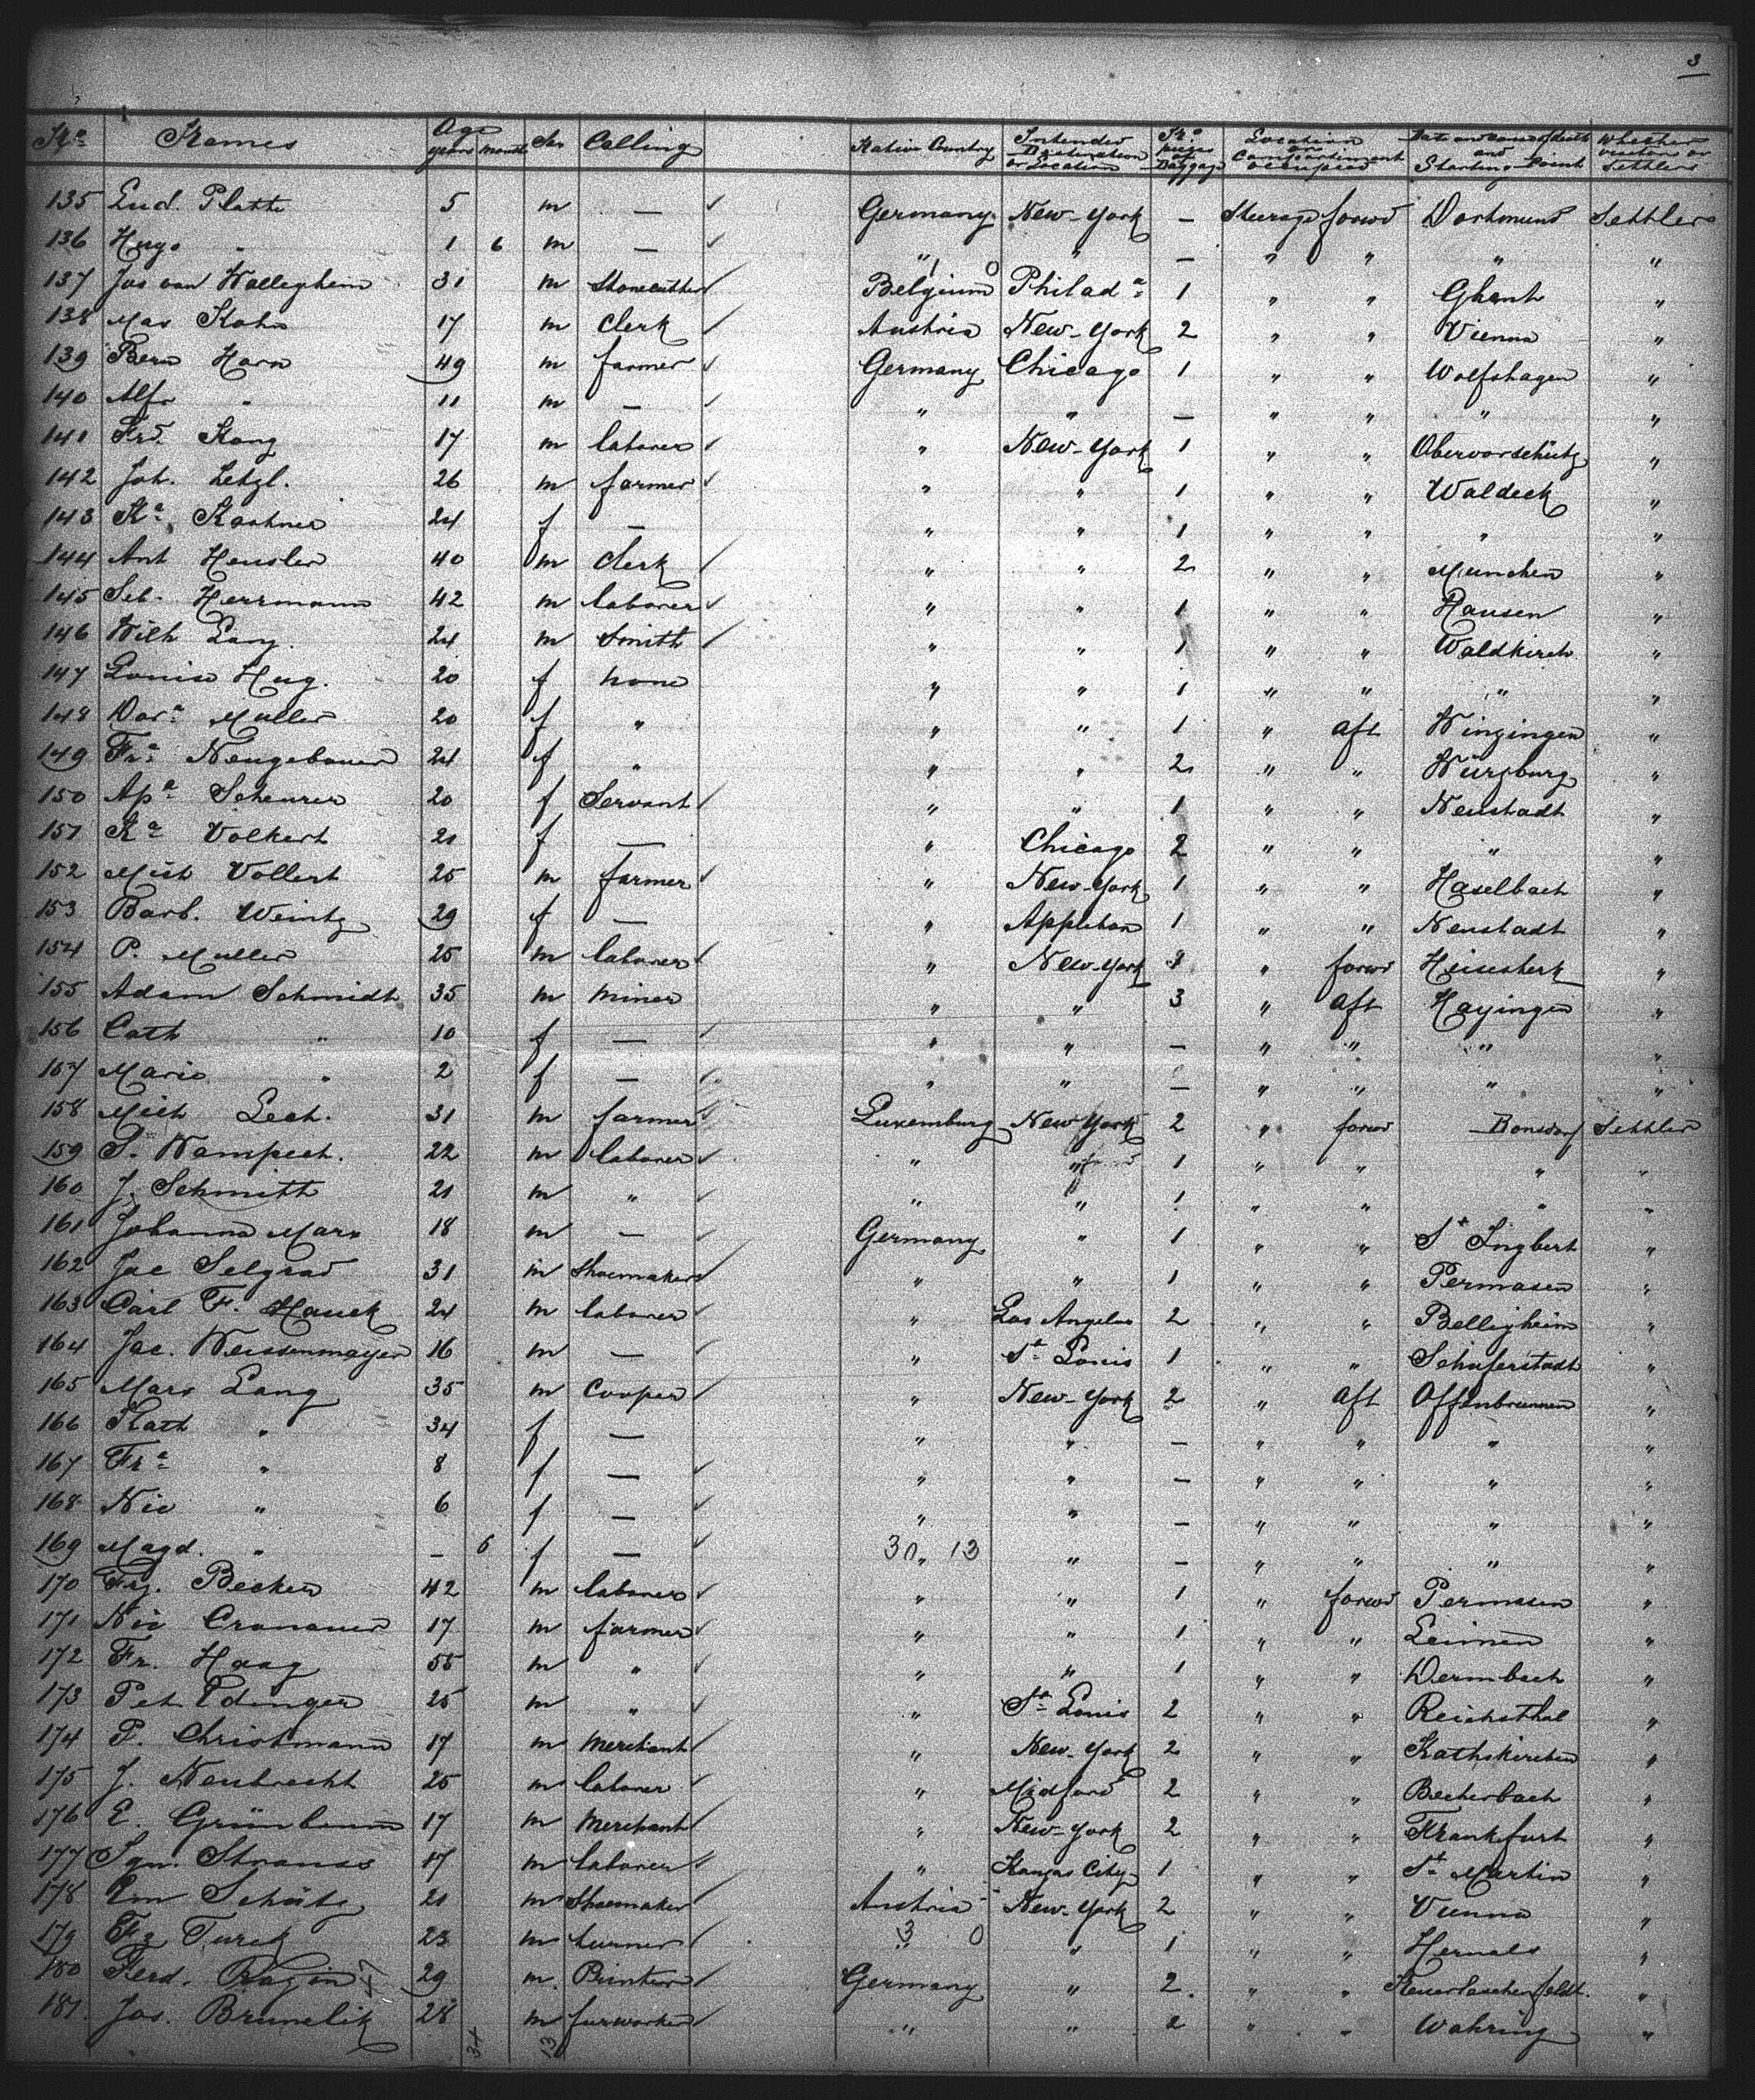 3
No. Names Age years Months Sex Calling Native Country Intended Destination or Location No. pieces of Baggage Location or Compartment occupied Date and cause of death and Starting Point Whether in transit or Settlers
135 Platte 5 m — Germany New-York — Steerage forwd Dortmund Settler
136 Hugo " 1 6 m — " " — " " " "
137 Jos van Walleghem 31 m Stonecutter Belgium Philada 1 " " Ghent "
138 Max Kohn 17 m Clerk Austria New-York 2 " " Vienna "
139 Bern Horn 49 m farmer Germany Chicago 1 " " Wolfshagen "
140 Alfr " 11 m — " " — " " " "
141 Frd. 17 m laborer " New-York 1 " " Obervorschütz "
142 Joh. 26 m farmer " " 1 " " Waldeck "
143 Ka Kastner 24 f — " " 1 " " " "
144 Ant Hensler 40 m Clerk " " 2 " " Munchen "
145 Seb. Herrmann 42 m laborer " " 1 " " Hausen "
146 Wilh Lang 24 m Smith " " 1 " " Waldkirch "
147 Louise Hug. 20 f none " " 1 " " " "
148 Dora Muller 20 f " " " 1 " aft Winzingen "
149 Fra Neugebauer 24 f " " " 2 " " Würzburg "
150 Apa Scheurer 20 f Servant " " 1 " " Neustadt "
151 Ka Volkert 21 f — " Chicago 2 " " " "
152 Mich Vollert 25 m farmer " New-York 1 " " Haselbach "
153 Barb. Weintz 29 f — " Appleton 1 " " Neustadt "
154 P. Muller 25 m laborer " New-York " forwd "
155 Adam Schmidt 35 m miner " " 3 " aft Hayingen "
156 Cath " 10 f — " " — " " " "
157 Marie " 2 f — " " — " " " "
158 Mich Lech. 31 m farmer Luxemburg New York 2 " forwd Bonsdorf Settler
159 S. Wampech. 22 m laborer " " 1 " " " "
160 J. Schmitt 21 m " " " 1 " " " "
161 Johanna Marx 18 m — Germany " 1 " " St Ingbert "
162 Jac Selgrad 31 m Shoemaker " " 1 " " Permasen "
163 Carl F. Hauck 24 m laborer " Los Angelos 2 " " Belligheim "
164 Jac. Weissenmayer 16 m — " St Louis 1 " " Schiferstadt "
165 Marx Lang 35 m Cooper " New-York 2 " aft Offenbrunnen "
166 Kath " 34 f — " " — " " " "
167 Fra " 8 f — " " — " " " "
168 Nic " 6 f — " " — " " " "
169 Magd. " — 6 f — 30 " 13 " — " " " "
170 Frz. Becker 42 m laborer " " 1 " forwd Permasen "
171 Nic Cronauer 17 m farmer " " 1 " " Leimen "
172 Fr. Haag 55 m " " " 1 " " Dermbach "
173 Pet Edinger 25 m " " St Louis 2 " " Reichsthal "
174 P. Christmann 17 m Merchant " New-York 2 " " Kathskirchen "
175 J. Neubrecht 25 m laborer " Midford 2 " " Becherbach "
176 E. Grünbaum 17 m Merchant " New-York 2 " " Frankfurt "
177 Strauss 17 m laborer " Kansas City 1 " " St Martin "
178 Em Schütz 21 m Shoemaker Austria New-York 2 " " Vienna "
179 Fz Turek 23 m turner " 3 0 " 1 " " Hernals "
180 Ferd. Ragin 29 m Printer Germany " 2 " " "
181. Jos. Brunelik 28 m furworker " " 2 " " Wahring "
34 13